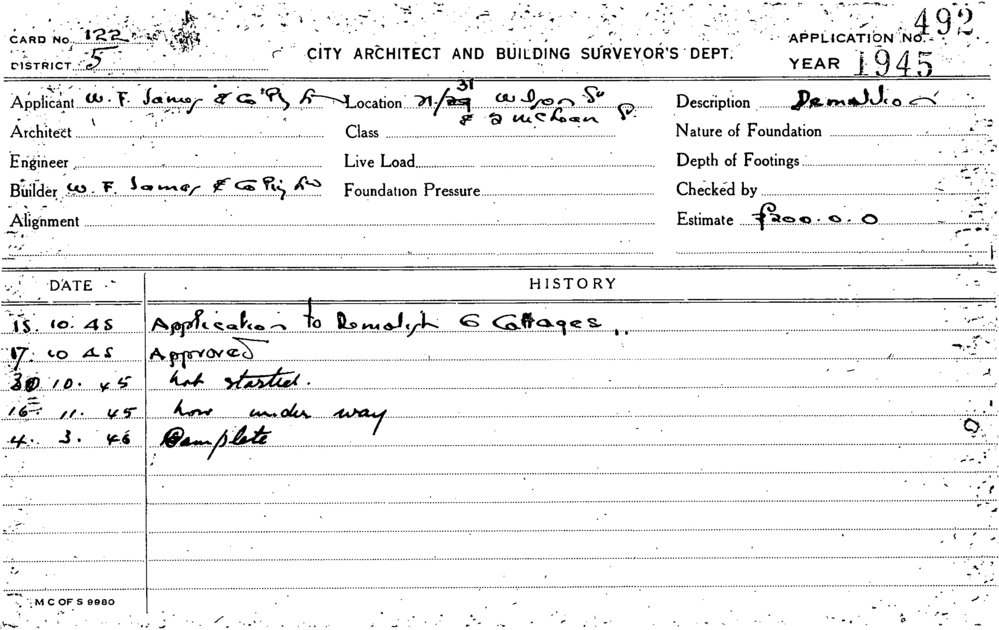 CARD No. 122
DISTRICT 5
CITY ARCHITECT AND BUILDING SURVEYOR'S DEPT.
APPLICATION No. 492
YEAR 1945
Applicant W. F. James & Co Pty Location 21/29 31 St
& 2 McLean
Description Demolition
Architect
Class
Nature of Foundation
Engineer
Live Load
Depth of Footings
Builder W. F. James & Co Pty
Foundation Pressure
Checked by
Alignment
Estimate £200.0.0
DATE HISTORY
15. 10. 45 Application to Demolish 6 Cottages
17. 10 45 Approved
30 10. 45 not started.
16 11. 45 now under way
4. 3. 46 Complete
M C OF S 9980